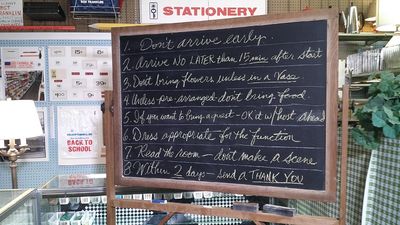 STATIONERY
1. Don't arrive early.
2. Arrive NO LATER than 15 min after start
3. Don't bring flowers unless in a Vase
4. Unless pre-arranged don't bring food.
5. If you want to bring a guest - OK it w/host ahead
6. Dress appropriate for the function
7. Read the room - don't make a scene
8. Within 2 days - send a THANK YOU
BACK TO
SCHOOL